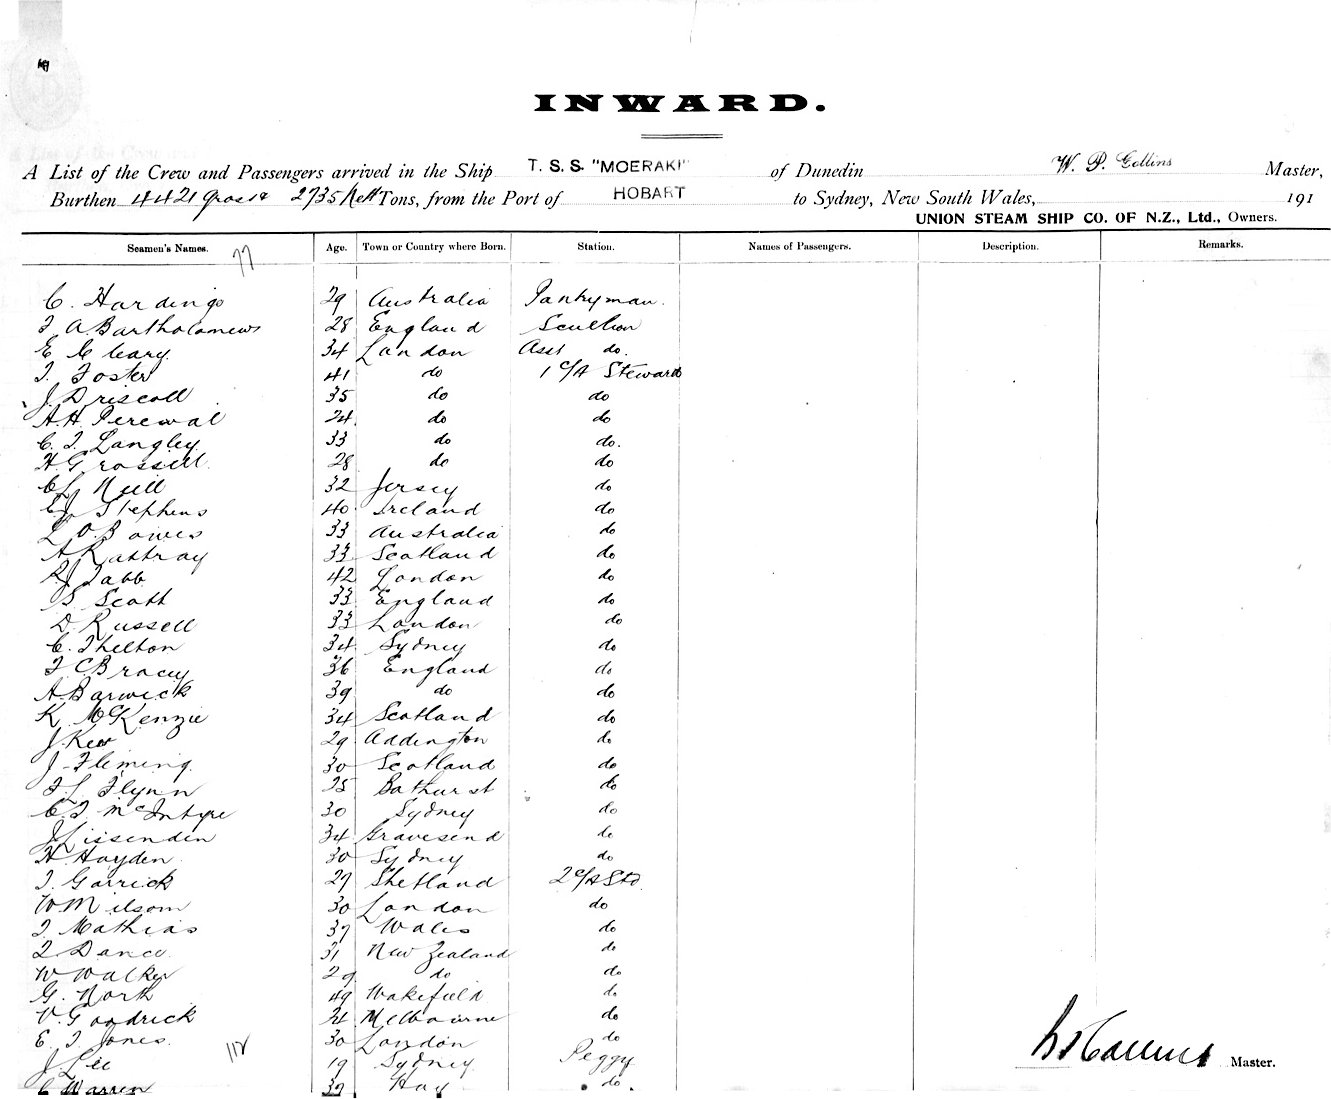 INWARD.
A List of the Crew and Passengers arrived in the Ship T. S. S. "MOERAKI" of Dunedin W. P. Collins Master,
Burthen 4421 Gross & 2735 Nett Tons, from the Port of HOBART to Sydney, New South Wales, 191
UNION STEAM SHIP CO. OF N.Z., Ltd., Owners.
Seamen's Names. Age. Town or Country where Born. Station. Names of Passengers. Description. Remarks.
77
C. Hardings 29 Australia Pantryman.
F. A Bartholomews 28 England Scullion
E Cleary. 34 London Asst do.
T. Foster 41 do 1 c/A Steward
J. Driscoll 35 do do
A. H. Percival 24 do do
C. T. Langley. 33 do do.
H. G 28 do do
Neill 32 Jersey do
Stephens 40 Ireland do
33 Australia do
A Rattray 33 Scotland do
Tabb 42 London do
S Scott 33 England do
D. Russell 33 London do
C. Thelton 34 Sydney do
F C Bracey 36 England do
A. Barwick 39 do do
K McKenzie 34 Scotland do
J. Kew 29 Addington do
J. Fleming. 30 Scotland do
F. L Flynn 25 Bathurst do
C. T. McIntyre 30 Sydney do
J Lissenden 34 Gravesend do
H. Hayden 30 Sydney do
T. Garrick 27 Shetland 2 c/A Std.
W Milsom 30 London do
T Mathias 37 Wales do
Dance. 31 New Zealand do
W Walker 29 do do
G. North 49 Wakefield do
V. Goodrick Melbourne do
E. T. Jones. 30 London do
112
J. Lee 19 Sydney Peggy
C Warren 39 Hay do.
W P Collins Master.